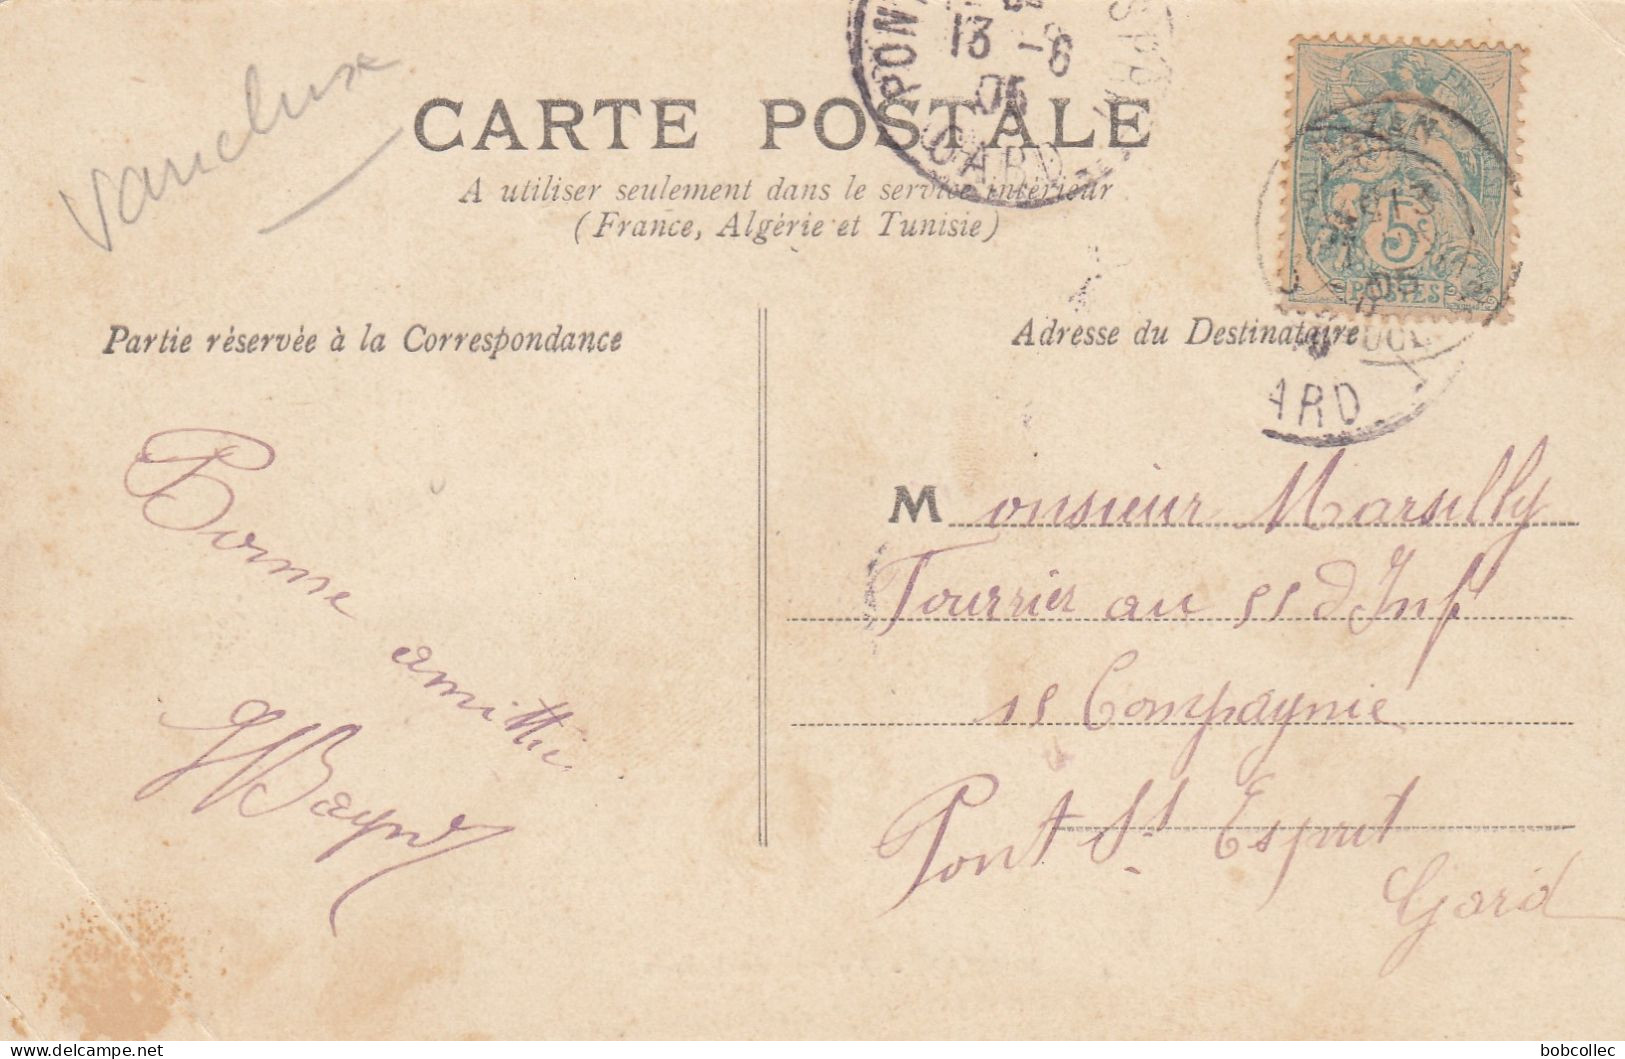 Vaucluse
CARTE POSTALE
A utiliser seulement dans le service intérieur
(France, Algérie et Tunisie)
13 -6
05
GARD
5
POSTES
Partie réservée à la Correspondance
Adresse du Destinataire
ARD
Bonne
amitié
Monsieur Marsilly
Fourrier au 55 d'Inf
15 Compagnie
Pont St Esprit
Gard
bobcollec